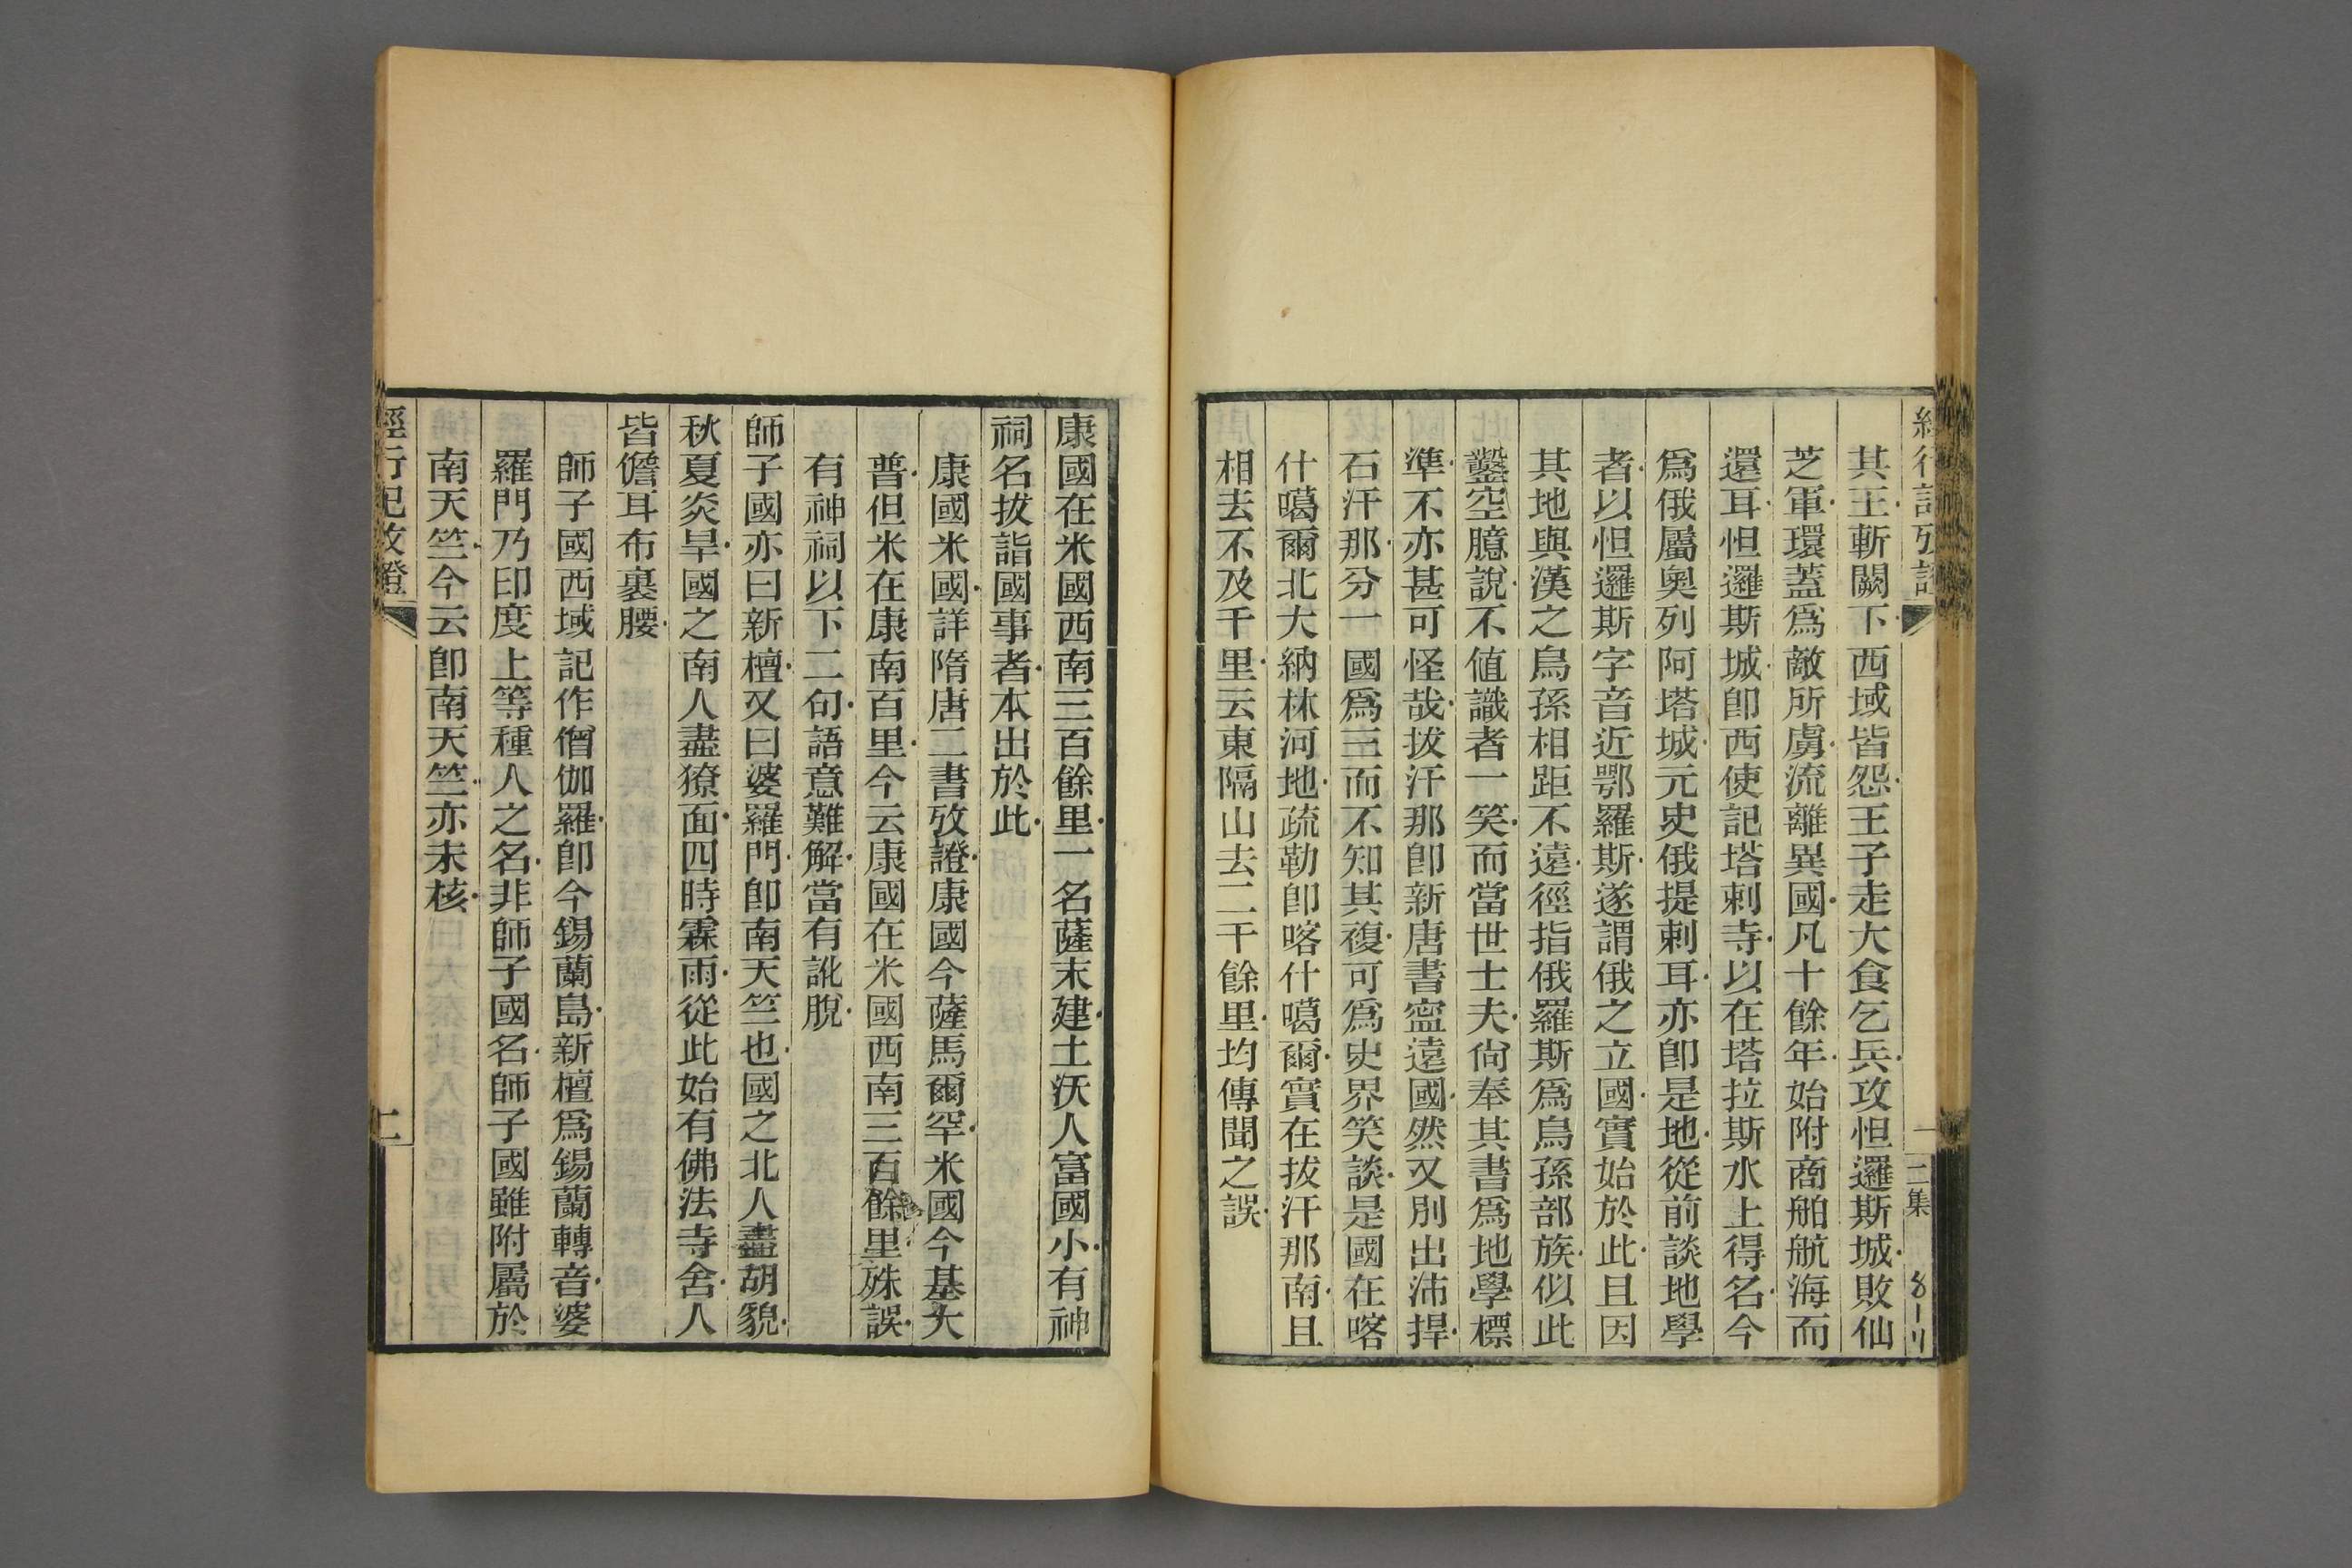 其王斬闕下西域皆怨王子走大食乞兵攻怛邏斯城敗仙
芝軍環蓋爲敵所虜流離異國凡十餘年始附商舶航海而
還耳怛邏斯城卽西使記塔剌寺以在塔拉斯水上得名今
爲俄屬奧列阿塔城元史俄提剌耳亦卽是地從前談地學
者以怛邏斯字音近鄂羅斯遂謂俄之立國實始於此且因
其地與漢之烏孫相距不遠徑指俄羅斯爲烏孫部族似此
鑿空臆說不値識者一笑而當世士夫尙奉其書爲地學標
準不亦甚可怪哉拔汗那卽新唐書寍遠國然又別出沛捍
石汗那分一國爲三而不知其複可爲史界笑談是國在喀
什噶爾北大納林河地疏勒卽喀什噶爾實在拔汗那南且
相去不及千里云東隔山去二千餘里均傳聞之誤
二集
康國在米國西南三百餘里一名薩末建土沃人富國小有神
祠名拔詣國事者本出於此
康國米國詳隋唐二書攷證康國今薩馬爾罕米國今基大
普但米在康南百里今云康國在米國西南三百餘里殊誤
有神祠以下二句語意難解當有訛脫
師子國亦曰新檀又曰婆羅門卽南天竺也國之北人盡胡貌
秋夏炎旱國之南人盡獠面四時霖雨從此始有佛法寺舍人
皆儋耳布裹腰
師子國西域記作僧伽羅卽今錫蘭島新檀爲錫蘭轉音婆
羅門乃印度上等種人之名非師子國名師子國雖附屬於
南天竺今云卽南天竺亦未核
經行記攷證
二